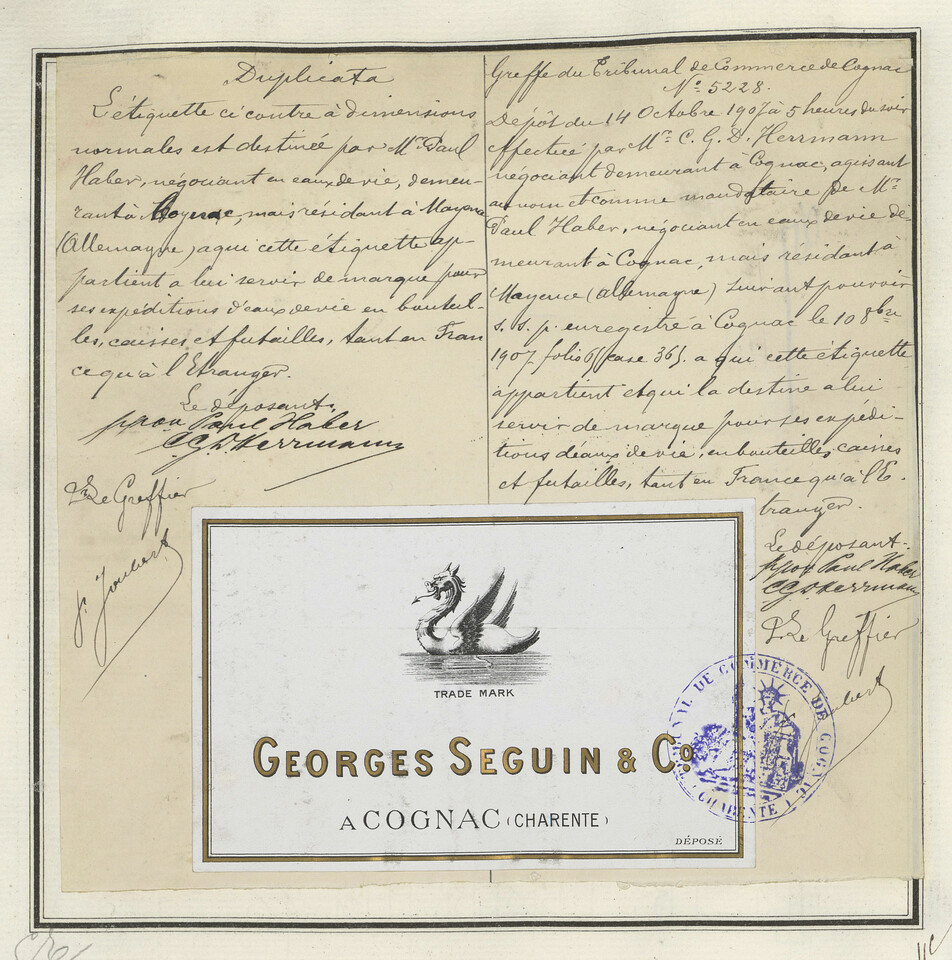 Duplicata
L'étiquette ci contre à dimensions
normales est destinée par Mr Paul
Haber, négociant en eaux de vie, demeu-
rant à Cognac, mais résidant à Mayence
(Allemagne) a qui cette étiquette ap-
partient a lui servir de marque pour
ses expéditions d'eaux de vie en bouteil-
les, caisses et futailles, tant en Fran
ce qu'à l'Etranger.
Le déposant.
ppon Paul Haber
C.G.D. Herrmann
Le Greffier
J. Joubert
Greffe du Tribunal de Commerce de Cognac
No 5228.
Dépôt du 14 Octobre 1907 à 5 heures du soir
effectué par Mr C. G. D. Herrmann
négociant demeurant à Cognac, agissant
au nom et comme mandataire de Mr
Paul Haber, négociant en eaux de vie de-
meurant à Cognac, mais résidant à
Mayence (Allemagne) suivant pouvoir
s. s. p. enregistré à Cognac le 10 8bre
1907 folio case 365. a qui cette étiquette
appartient et qui la destine a lui
servir de marque pour ses expédi-
tions d'eaux de vie, en bouteilles, caisses
et futailles, tant en France qu'à l'E-
tranger.
Le déposant.
ppon Paul Haber
C.G.D. Herrmann
Le Greffier
Joubert
TRADE MARK
GEORGES SEGUIN & Co.
A COGNAC (CHARENTE)
DÉPOSÉ
TRIBUNAL DE COMMERCE DE COGNAC
(CHARENTE)